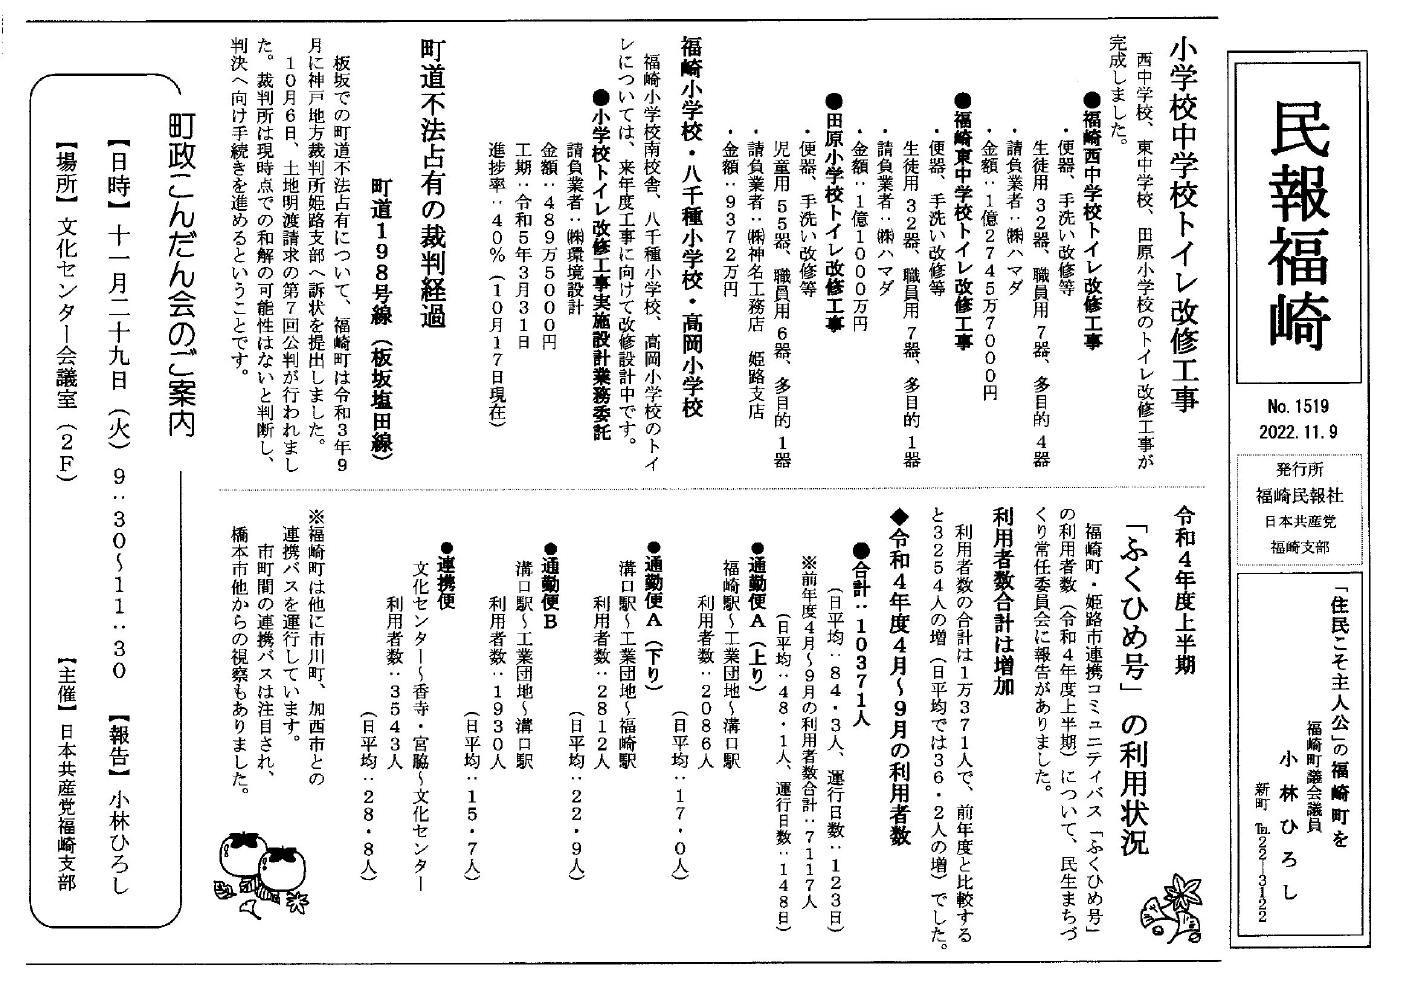 民報福崎
No. 1519
2022. 11. 9
発行所
福崎民報社
日本共産党
福崎支部
「住民こそ主人公」の福崎町を
福崎町議会議員
小林ひろし
新町 ℡22―3122
小学校中学校トイレ改修工事
西中学校、東中学校、田原小学校のトイレ改修工事が
完成しました。
●福崎西中学校トイレ改修工事
・便器、手洗い改修等
生徒用32器、職員用7器、多目的4器
・請負業者：㈱ハマダ
・金額：1億2745万7000円
●福崎東中学校トイレ改修工事
・便器、手洗い改修等
生徒用32器、職員用7器、多目的1器
・請負業者：㈱ハマダ
・金額：1億1000万円
●田原小学校トイレ改修工事
・便器、手洗い改修等
児童用55器、職員用6器、多目的1器
・請負業者：㈱神名工務店 姫路支店
・金額：9372万円
福崎小学校・八千種小学校・高岡小学校
福崎小学校南校舎、八千種小学校、高岡小学校のトイ
レについては、来年度工事に向けて改修設計中です。
●小学校トイレ改修工事実施設計業務委託
請負業者：㈱環境設計
金額：489万5000円
工期：令和5年3月31日
進捗率：40％（10月17日現在）
町道不法占有の裁判経過
町道198号線（板坂塩田線）
板坂での町道不法占有について、福崎町は令和3年9
月に神戸地方裁判所姫路支部へ訴状を提出しました。
10月6日、土地明渡請求の第7回公判が行われまし
た。裁判所は現時点での和解の可能性はないと判断し、
判決へ向け手続きを進めるということです。
令和4年度上半期
「ふくひめ号」の利用状況
福崎町・姫路市連携コミュニティバス「ふくひめ号」
の利用者数（令和4年度上半期）について、民生まちづ
くり常任委員会に報告がありました。
利用者数合計は増加
利用者数の合計は1万371人で、前年度と比較する
と3254人の増（日平均では36・2人の増）でした。
◆令和4年度4月～9月の利用者数
●合計：10371人
（日平均：84・3人、運行日数：123日）
※前年度4月～9月の利用者数合計：7117人
（日平均：48・1人、運行日数：148日）
●通勤便A（上り）
福崎駅～工業団地～溝口駅
利用者数：2086人
（日平均：17・0人）
●通勤便A（下り）
溝口駅～工業団地～福崎駅
利用者数：2812人
（日平均：22・9人）
●通勤便B
溝口駅～工業団地～溝口駅
利用者数：1930人
（日平均：15・7人）
●連携便
文化センター～香寺・宮脇～文化センター
利用者数：3543人
（日平均：28・8人）
※福崎町は他に市川町、加西市との
連携バスを運行しています。
市町間の連携バスは注目され、
橋本市他からの視察もありました。
町政こんだん会のご案内
【日時】十一月二十九日（火）9：30～11：30 【報告】小林ひろし
【場所】文化センター会議室（2F） 【主催】日本共産党福崎支部